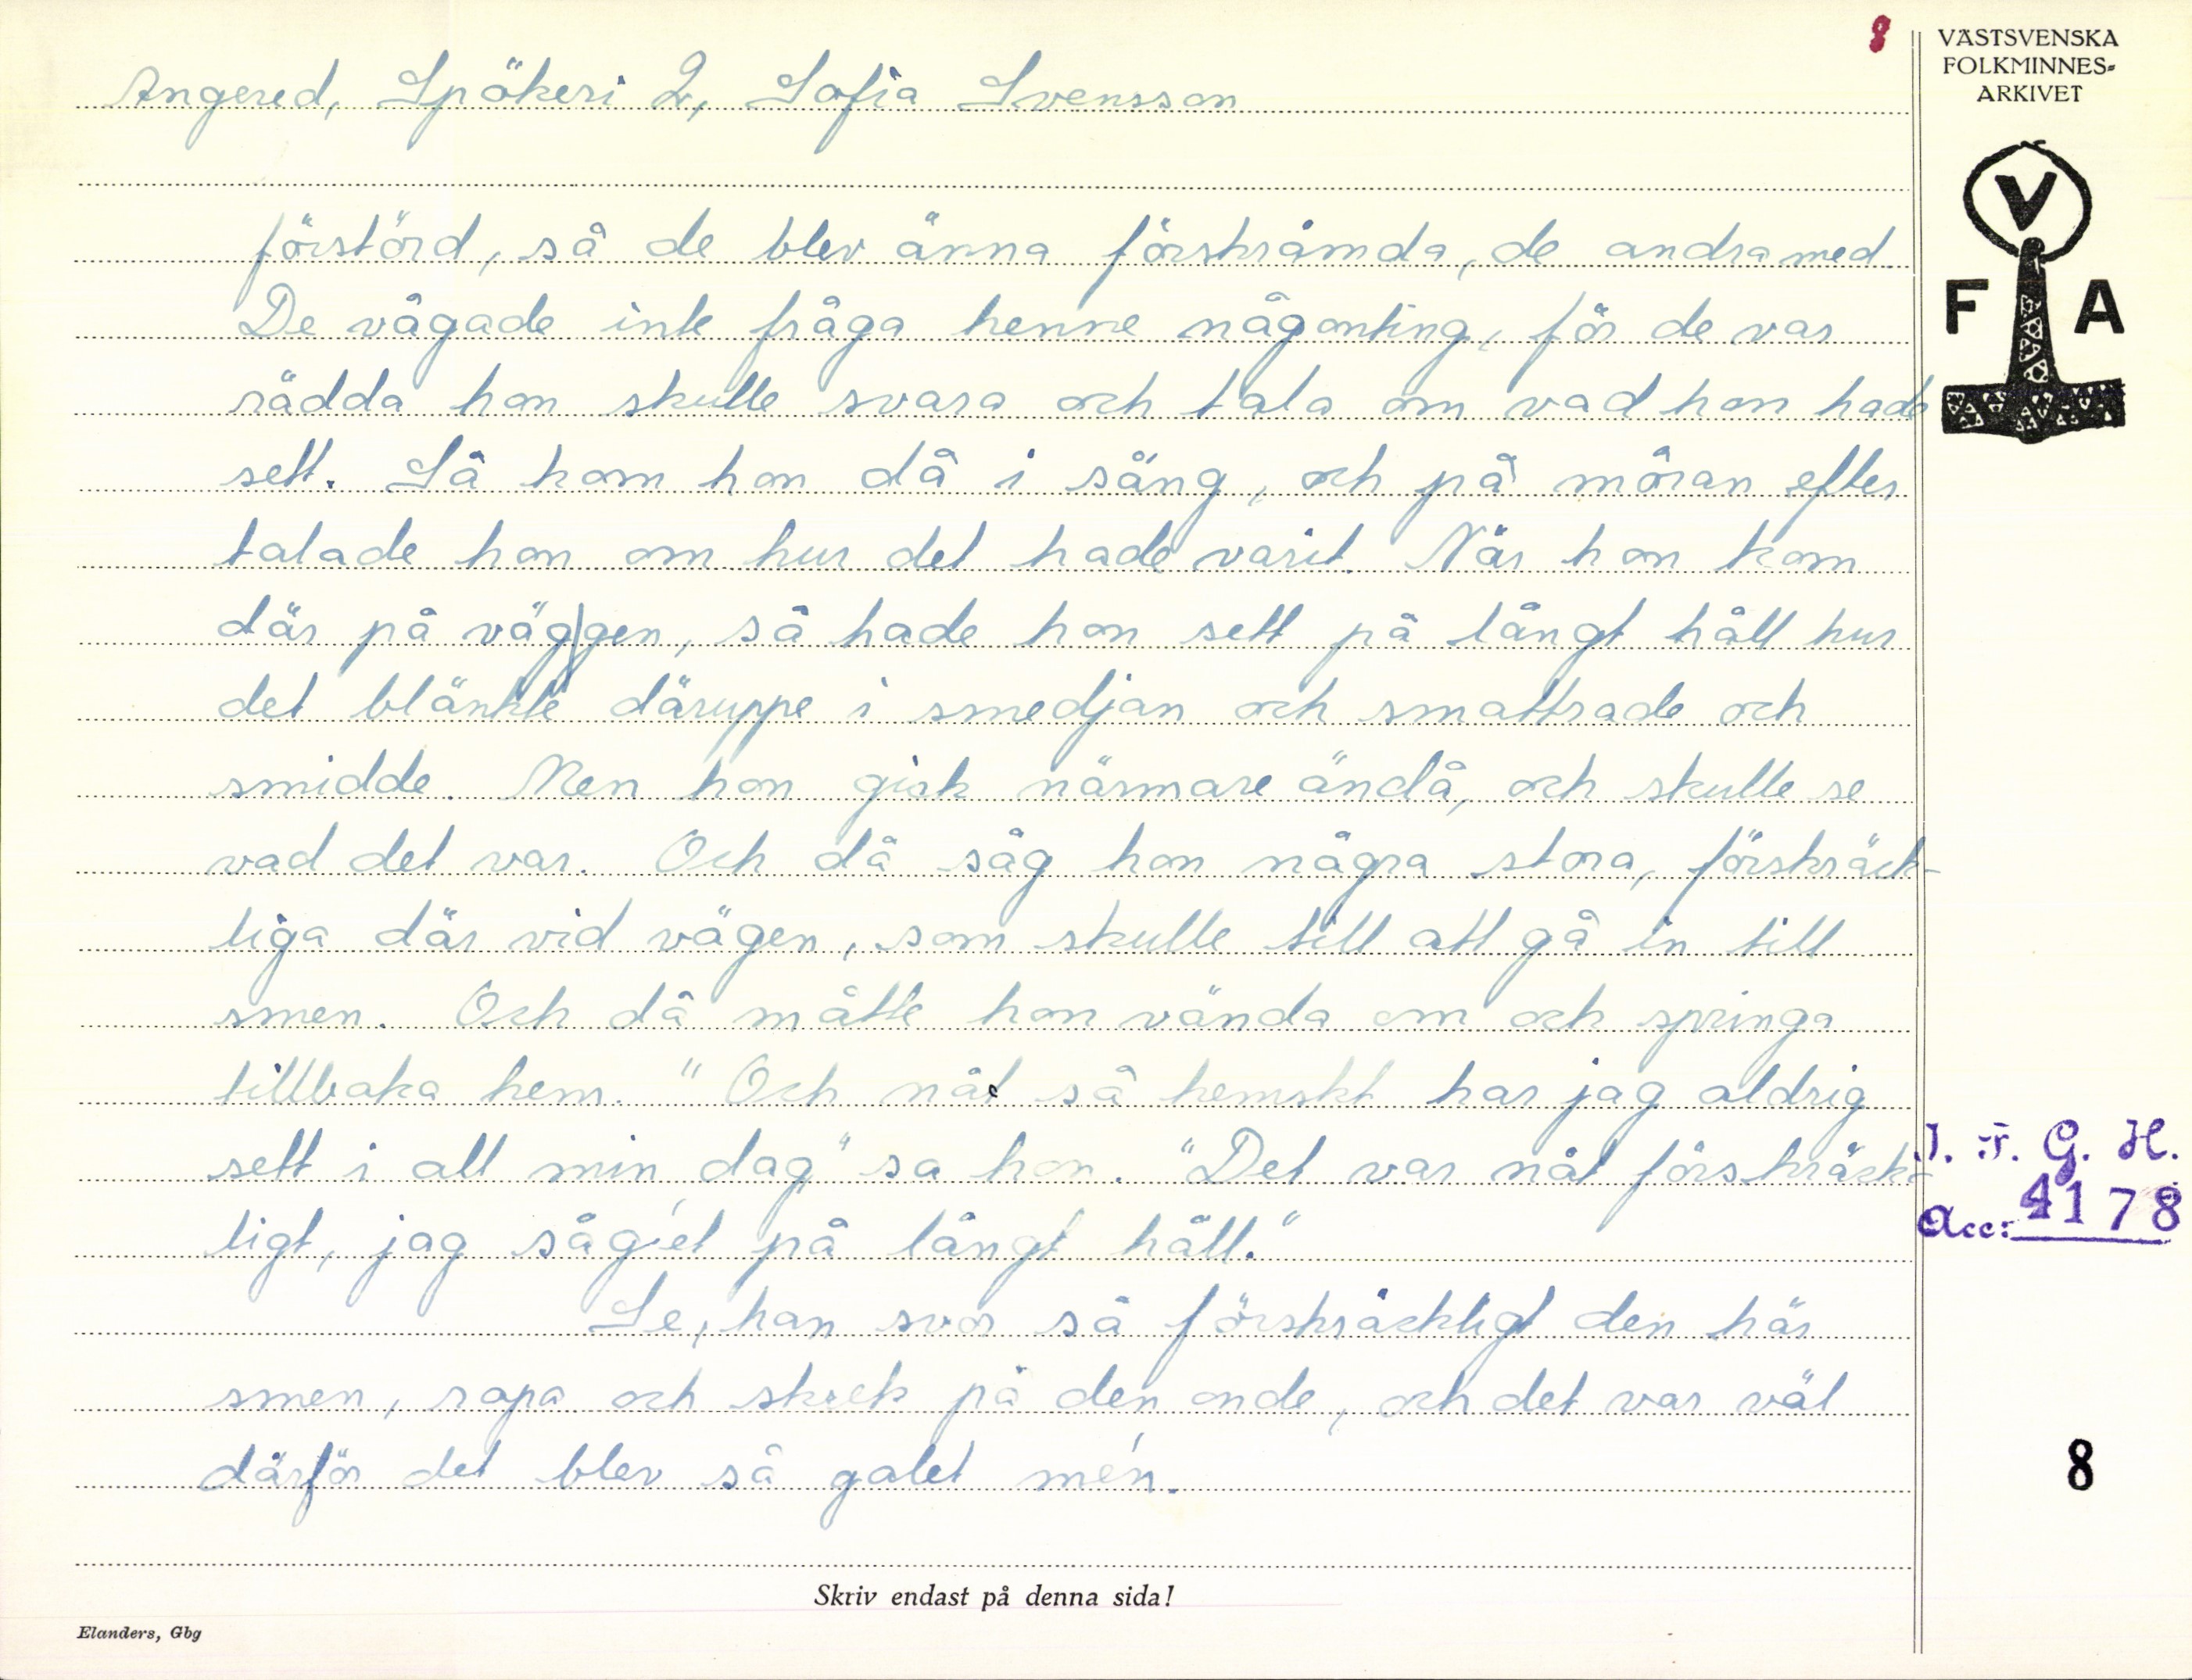 8
VÄSTSVENSKA
FOLKMINNES-
ARKIVET
V
F A
Angered, Spökeri 2, Sofia Svensson
förstörd, så de blev änna förskrämda, de andra med.
De vågade inte fråga henne någonting, för de var
rädda hon skulle svara och tala om vad hon hade
sett. Så kom hon då i säng, och på måran efter
talade hon om hur det hade varit. När hon kom
där på väg|gen, så hade hon sett på långt håll hur
det blänkte däruppe i smedjan och smattrade och
smidde. Men hon gick närmare ändå, och skulle se
vad det var. Och då såg hon några stora, förskräck-
liga där vid vägen, som skulle till att gå in till
smen. Och då måtte hon vända om och springa
tillbaka hem. "Och nåt så hemskt har jag aldrig
sett i all min dag" sa hon. "Det var nåt förskräck-
ligt, jag såg'et på långt håll."
Se, han svor så förskräckligt den här
smen, ropa och skrek på den onde, och det var väl
därför det blev så galet mén.
I. F. G. H.
Acc: 4178
8
Skriv endast på denna sida!
Elanders, Gbg